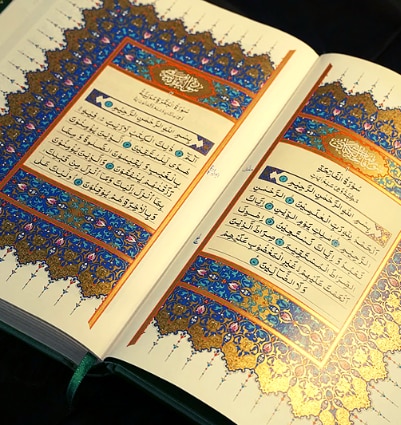 بِسْمِ اللهِ الرَّحْمٰنِ الرَّحِيمِ
اَلْحَمْدُ لِلّٰهِ رَبِّ الْعَالَمِينَ الرَّحْمٰنِ
الرَّحِيمِ مَالِكِ يَوْمِ الدِّينِ اِيَّاكَ
نَعْبُدُ وَاِيَّاكَ نَسْتَعِينُ اِهْدِنَا
الصِّرَاطَ الْمُسْتَقِيمَ صِرَاطَ الَّذِينَ
اَنْعَمْتَ عَلَيْهِمْ غَيْرِ الْمَغْضُوبِ عَلَيْهِمْ
وَلَا الضَّالِّينَ
بِسْمِ اللهِ الرَّحْمٰنِ الرَّحِيمِ
الٓمٓ ذٰلِكَ الْكِتَابُ لَا رَيْبَ فِيهِ
هُدًى لِلْمُتَّقِينَ الَّذِينَ يُؤْمِنُونَ
بِالْغَيْبِ وَيُقِيمُونَ الصَّلٰوةَ وَمِمَّا
رَزَقْنَاهُمْ يُنْفِقُونَ وَالَّذِينَ يُؤْمِنُونَ
بِمَا اُنْزِلَ اِلَيْكَ وَمَا اُنْزِلَ مِنْ قَبْلِكَ
وَبِالْاٰخِرَةِ هُمْ يُوقِنُونَ